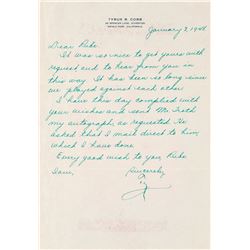 TYRUS R. COBB
48 SPENCER LANE, ATHERTON
MENLO PARK, CALIFORNIA
January 7, 1948
Dear Rube:
It was so nice to get yours with
request and to hear from you in
this way. It has been so long since
we played against each other
I have this day complied with
your wishes and send Mr
my autograph, as requested. He
asked that I mail direct to him
which I have done.
Every good wish to you, Rube
I am,
Sincerely,
Ty